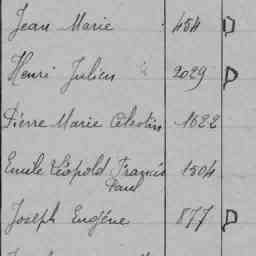 Jean Marie 484 D
Henri Julien 2029 D
Pierre Marie Célestin 1622
Emile Léopold Francis 1304
Paul
Joseph Eugène 877 D